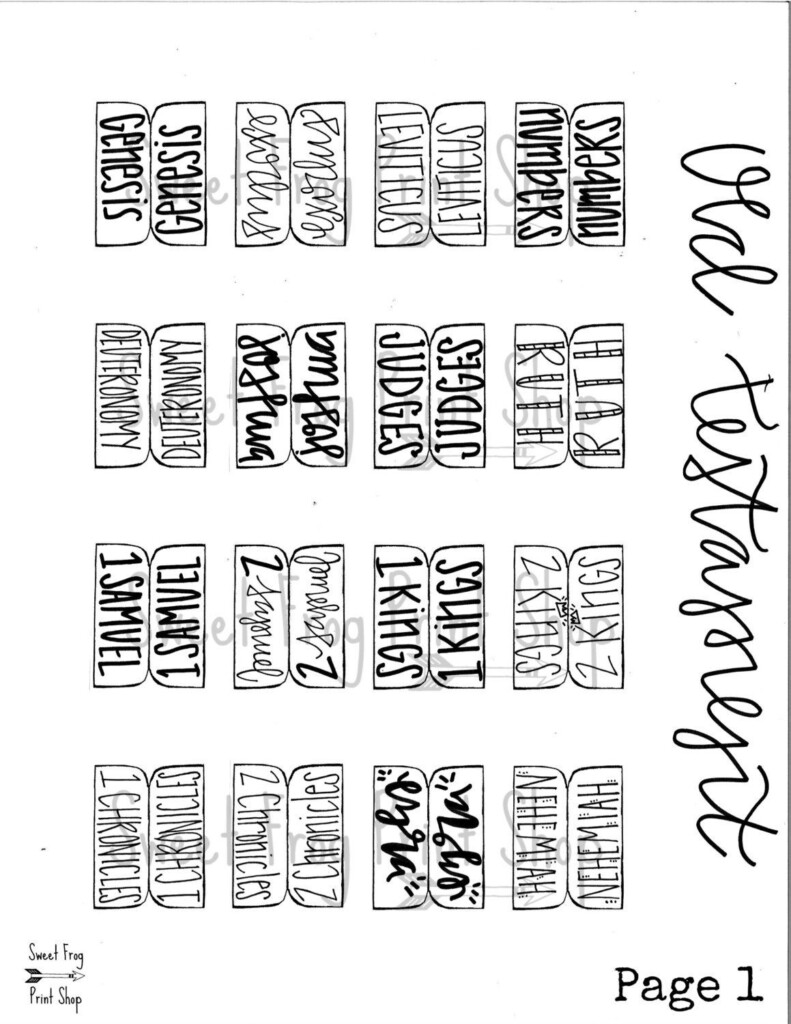 Old testament
Genesis
Genesis
exodus
exodus
LEVITICUS
LEVITICUS
numbers
numbers
Sweet Frog Print Shop
DEUTERONOMY
DEUTERONOMY
joshua
joshua
JUDGES
JUDGES
RUTH
RUTH
Sweet Frog Print Shop
1 SAMUEL
1 SAMUEL
2 Samuel
2 Samuel
1 KINGS
1 KINGS
2 KINGS
2 KINGS
Sweet Frog Print Shop
1 CHRONICLES
1 CHRONICLES
2 Chronicles
2 Chonicles
ezra
ezra
NEHEMIAH
NEHEMIAH
Sweet Frog Print Shop
Sweet Frog
Print Shop
Page 1